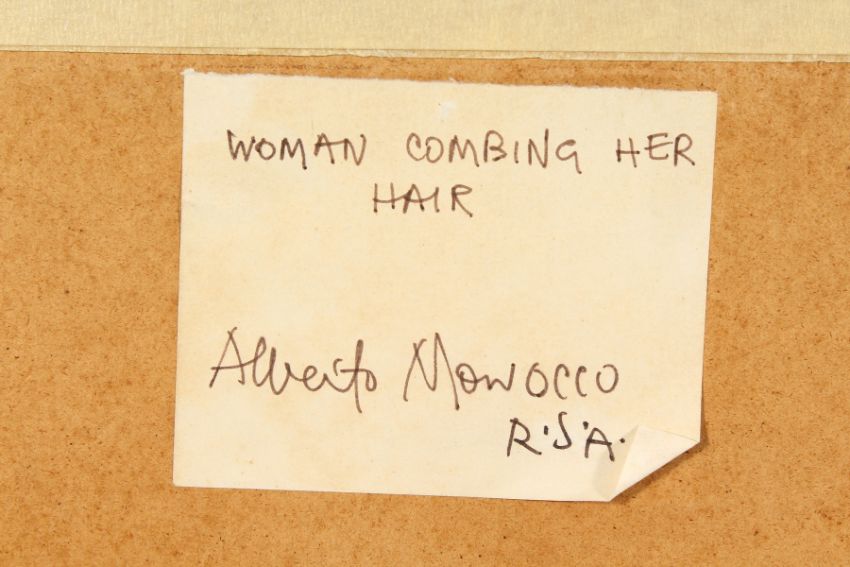 WOMAN COMBING HER
HAIR
Alberto Morrocco
R.S.A.